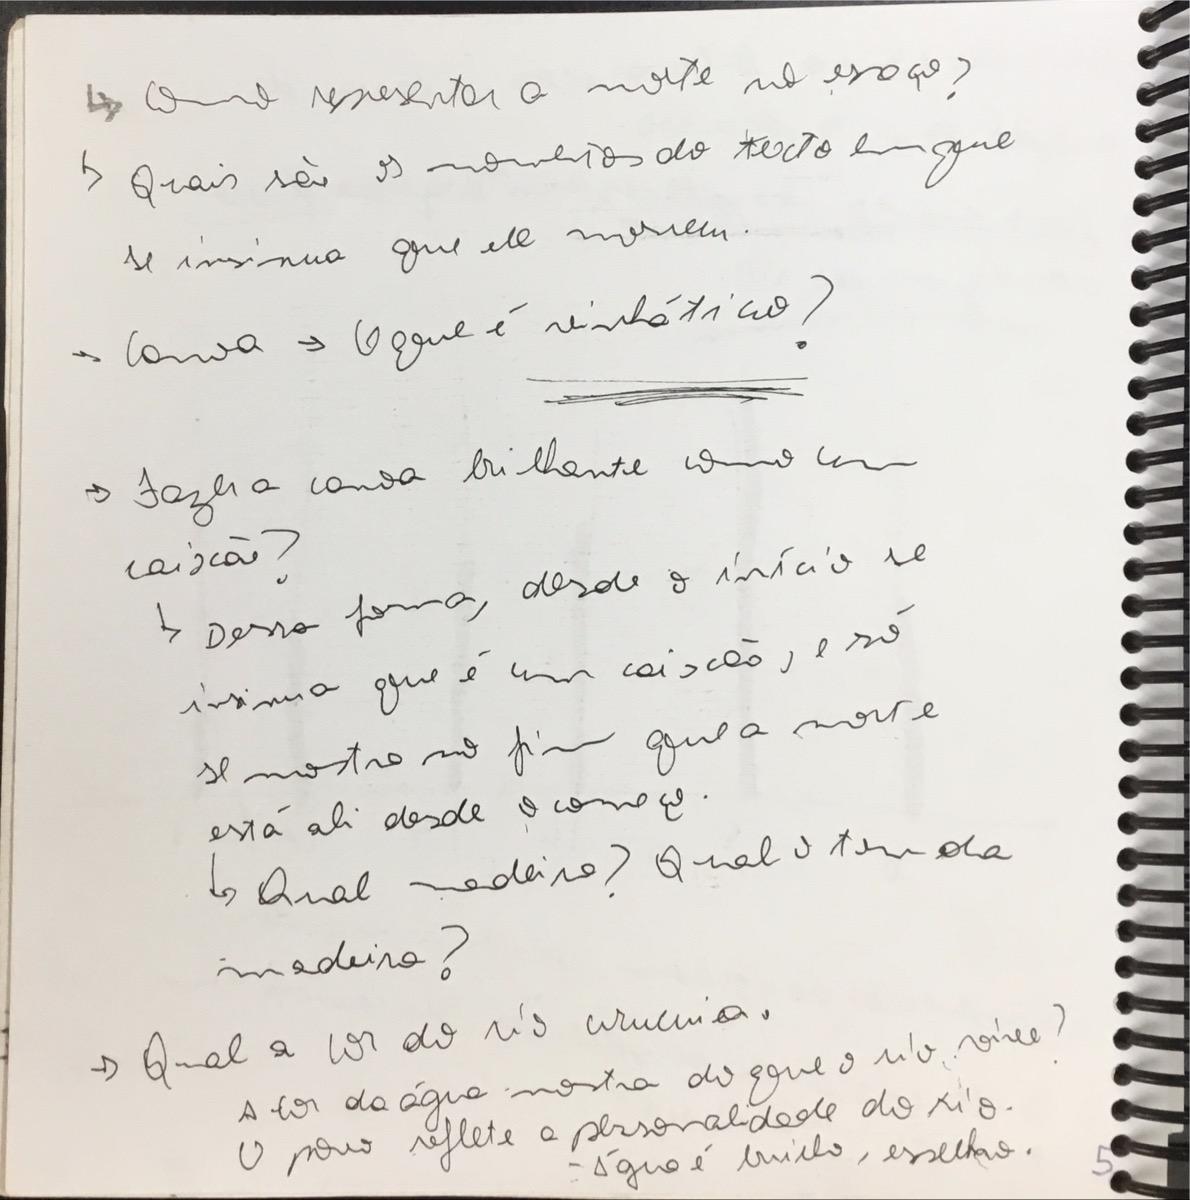 ↳ Como representar a morte no espaço?
↳ Quais são os momentos do texto em que
se insinua que ele morreu.
→ Canoa → O que é vinhático?
→ Fazer a canoa brilhante como um
caixão?
↳ Dessa forma, desde o início se
insinua que é um caixão, e só
se mostra no fim que a morte
está ali desde o começo.
↳ Qual madeira? Qual o tom da
madeira?
→ Qual a cor do rio urucuia.
A cor da água mostra do que o rio vive?
O povo reflete a personalidade do rio.
- Água é brilho, espelho.
5